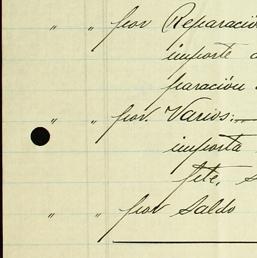 " " por Reparació
importe
paración
" " por. Varios:
importa
fete, s
" " por Saldo